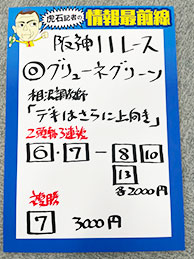 虎石記者の
情報最前線
阪神11レース
◎グリューネグリーン
相沢調教師
「デキはさらに上向き」
2頭軸3連複
6・7-8 10
13
各2000円
複勝
7 3000円